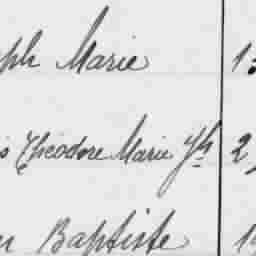 ph Marie 1
s Théodore Marie Jh 2
Baptiste 1